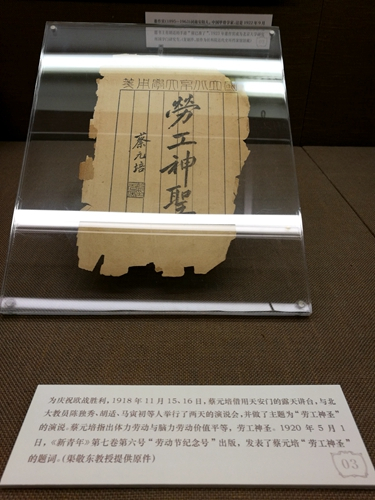 國立北京大學用箋
勞工神聖
蔡元培
为庆祝欧战胜利，1918 年 11 月 15、16 日，蔡元培借用天安门的露天讲台，与北
大教员陈独秀、胡适、马寅初等人举行了两天的演说会，并做了主题为“劳工神圣”
的演说。蔡元培指出体力劳动与脑力劳动价值平等，劳工神圣。1920 年 5 月 1
日，《新青年》第七卷第六号“劳动节纪念号”出版，发表了蔡元培“劳工神圣”
的题词。(渠敬东教授提供原件)
03